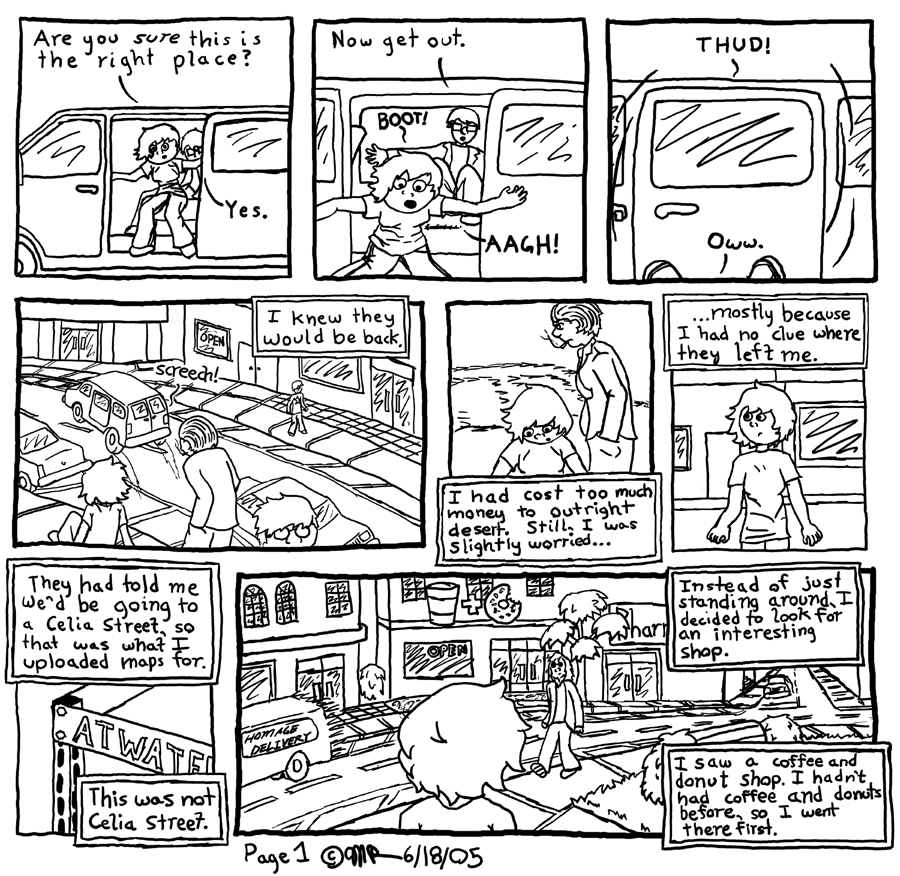 Are you sure this is
the right place?
Yes.
Now get out.
BOOT!
AAGH!
THUD!
Oww.
I knew they
would be back.
OPEN
screech!
I had cost too much
money to outright
desert. Still, I was
slightly worried...
...mostly because
I had no clue where
they left me.
They had told me
we'd be going to
a Celia Street, so
that was what I
uploaded maps for.
ATWATE
This was not
Celia Street.
Instead of just
standing around, I
decided to look for
an interesting
shop.
OPEN
Char
HOMAGE
DELIVERY
I saw a coffee and
donut shop. I hadn't
had coffee and donuts
before, so I went
there first.
Page 1 ©
6/18/05